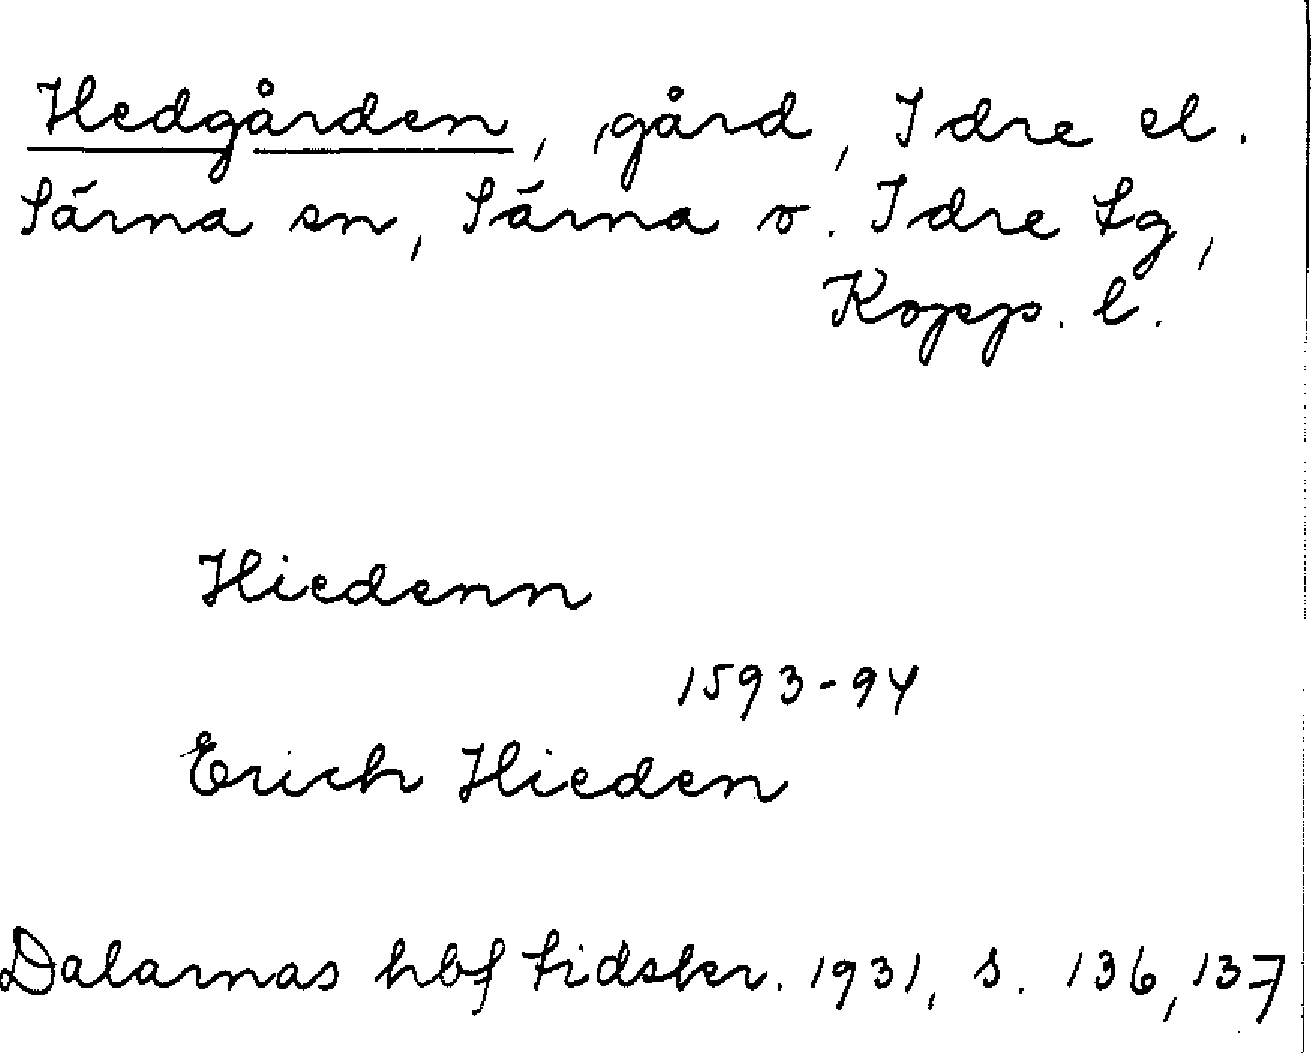 Hedgården, gård, Idre el.
Särna sn, Särna o. Idre tg,
Kopp. l.
Hiedenn
1593-94
Erich Hieden
Dalarnas hbf tidskr. 1931, s. 136, 137